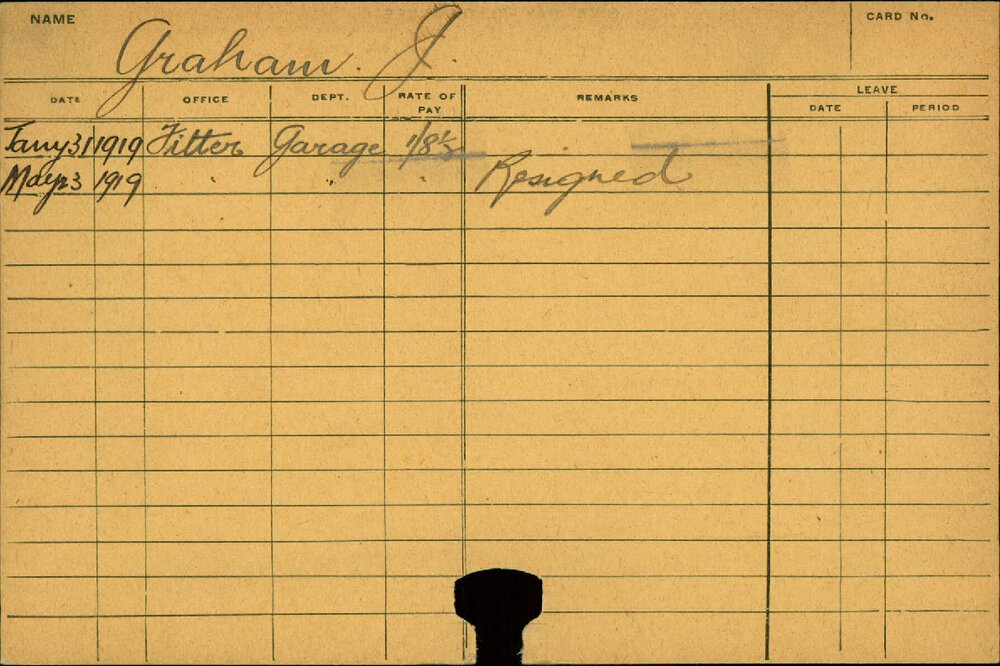 NAME Graham. J. CARD No.
DATE OFFICE DEPT. RATE OF PAY REMARKS LEAVE
DATE PERIOD
Jany 31 1919 Fitter Garage 1/8½
May 23 1919 " " " Resigned